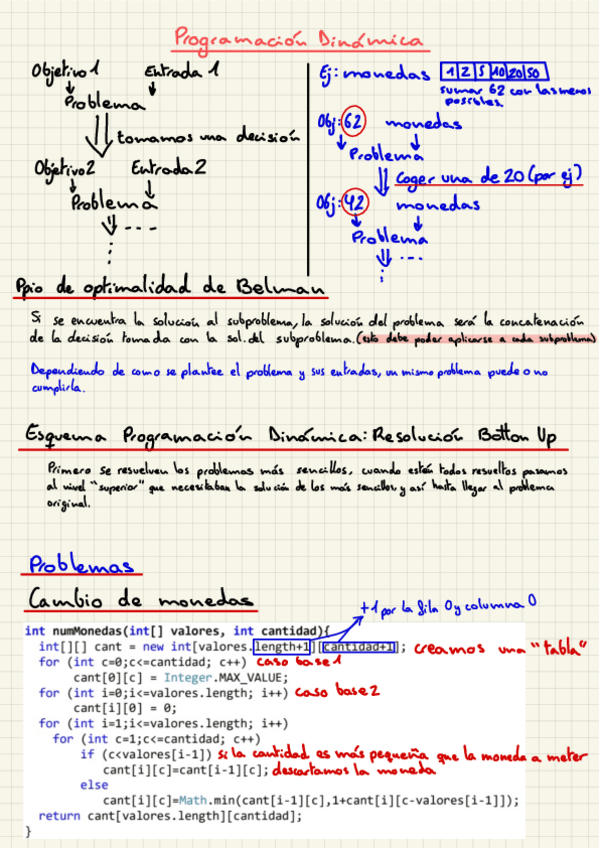 Programación Dinámica
Objetivo 1 Entrada 1
Problema
tomamos una decisión
Objetivo 2 Entrada 2
Problema
Ej: monedas 1 2 5 10 20 50
sumar 62 con las menos
posibles.
Obj: 62 monedas
Problema
Coger una de 20 (por ej)
Obj: 42 monedas
Problema
Ppio de optimalidad de Belman
Si se encuentra la solución al subproblema, la solución del problema será la concatenación
de la decisión tomada con la sol. del subproblema. (esto debe poder aplicarse a cada subproblema)
Dependiendo de como se plantee el problema y sus entradas, un mismo problema puede o no
cumplirla.
Esquema Programación Dinámica: Resolución Botton Up
Primero se resuelven los problemas más sencillos, cuando estén todos resueltos pasamos
al nivel "superior" que necesitaban la solución de los más sencillos, y así hasta llegar al problema
original.
Problemas
Cambio de monedas
+1 por la fila 0 y columna 0
int numMonedas(int[] valores, int cantidad){
int[][] cant = new int[valores.length+1][cantidad+1]; creamos una "tabla"
for (int c=0;c<=cantidad; c++) caso base 1
cant[0][c] = Integer.MAX_VALUE;
for (int i=0;i<=valores.length; i++) caso base 2
cant[i][0] = 0;
for (int i=1;i<=valores.length; i++)
for (int c=1;c<=cantidad; c++)
if (c<valores[i-1]) si la cantidad es más pequeña que la moneda a meter
cant[i][c]=cant[i-1][c]; descartamos la moneda
else
cant[i][c]=Math.min(cant[i-1][c],1+cant[i][c-valores[i-1]]);
return cant[valores.length][cantidad];
}